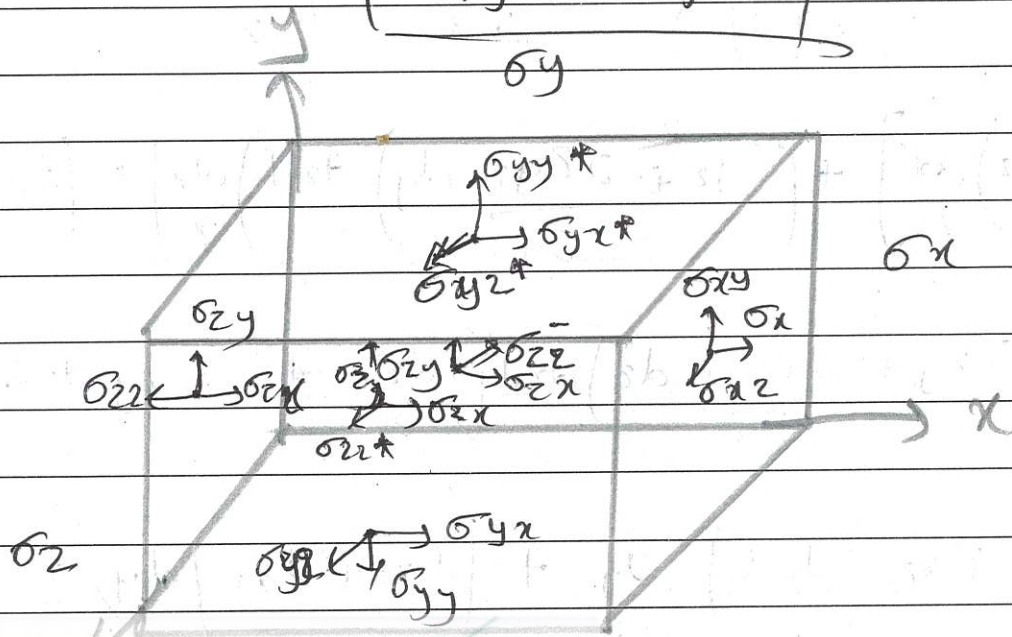 y
σy
σyy*
σyx*
σxyz*
σx
σxy
σx
σxz
σzy
σzz σzx
σzy σzz̄
σzx
σzx
σzz*
x
σyx
σz
σyy